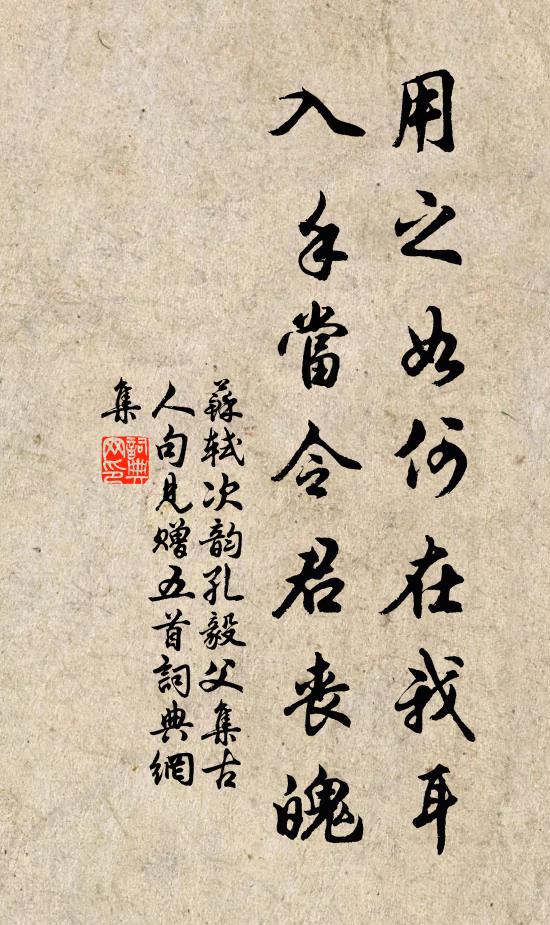 用之如何在我耳
入手當令君喪魄
蘇軾次韵孔毅父集古
人句見赠五首詞典網
集
詞典
网印